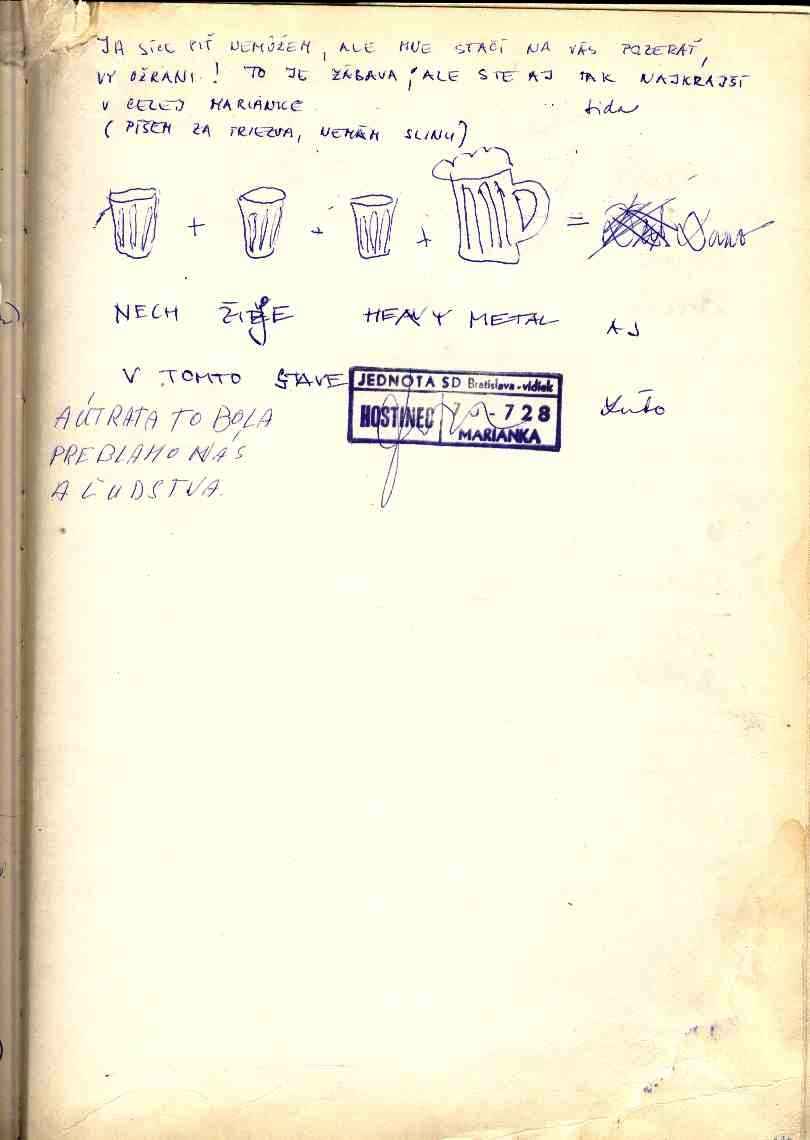 JA SÍCE PIŤ NEMÔŽEM, ALE MNE STAČÍ NA VÁS POZERAŤ,
VY OŽRANI! TO JE ZÁBAVA, ALE STE AJ TAK NAJKRAJŠÍ
V CELEJ MARIÁNKE
(PÍŠEM ZA TRIEZVA, NEMÁM SLINU)
+ + + = Dano
NECH ŽIJE HEAVY METAL AJ
V TOMTO STAVE
JEDNOTA SD Bratislava-vidiek
HOSTINEC 728
MARIANKA
A ÚTRATA TO BOLA
PRE BLAHO NÁS
A ĽUDSTVA.